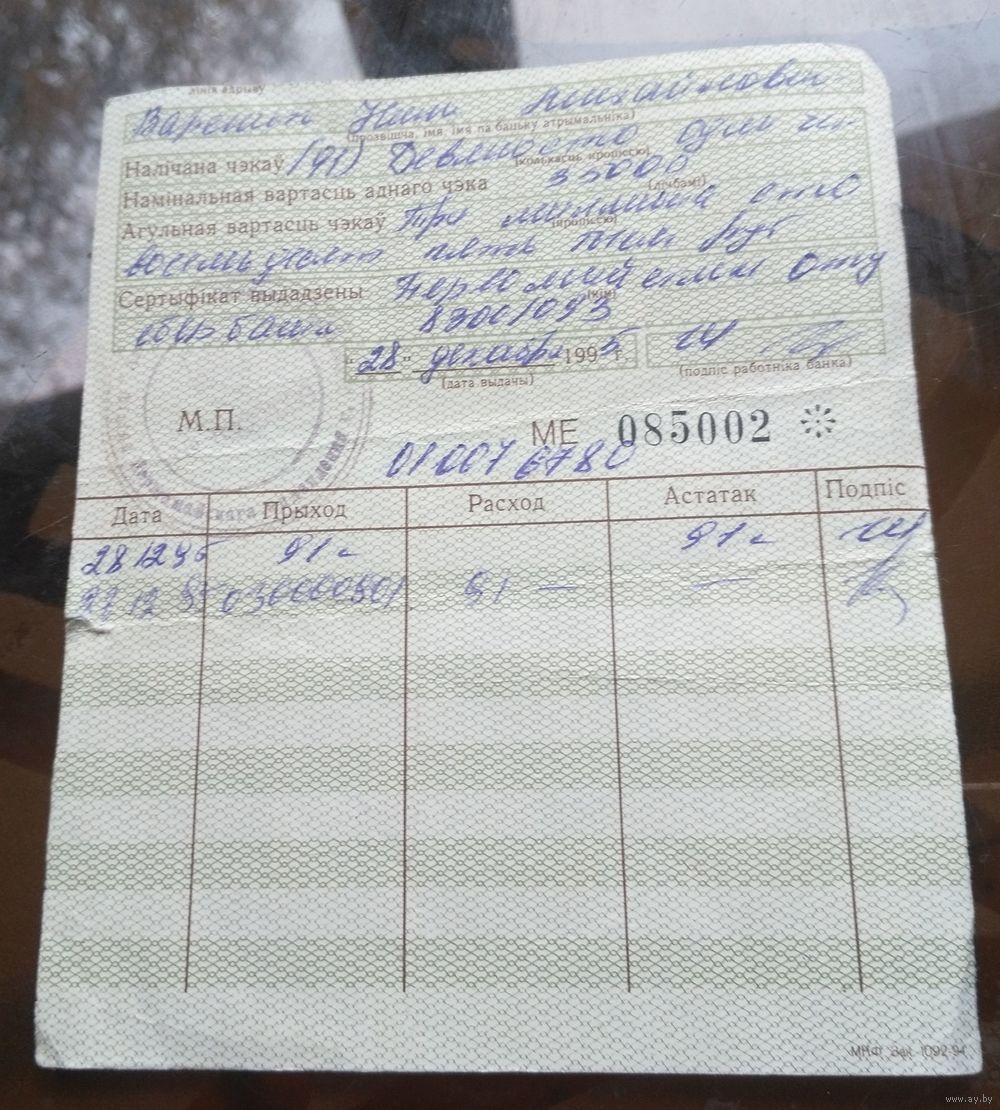 лінія адрыву
Михайлович
(прозвішча, імя, імя па бацьку атрымальніка)
Налічана чэкаў (91) Девяносто один ч.
(колькасць пропіссю)
Намінальная вартасць аднаго чэка 35000
(лічбамі)
Агульная вартасць чэкаў Три миллиона сто
(пропіссю)
восемьдесят пять тыс руб
Сертыфікат выдадзены Первомайским отд
(кім)
сбербанка
"28" декабря 1995 г.
(дата выдачы) (подпіс работніка банка)
М.П. МЕ 085002
010076780
Дата Прыход Расход Астатак Подпіс
28 12 95 91 ч 91 ч
91 —
МНФ Зак. 1092-94
www.ay.by